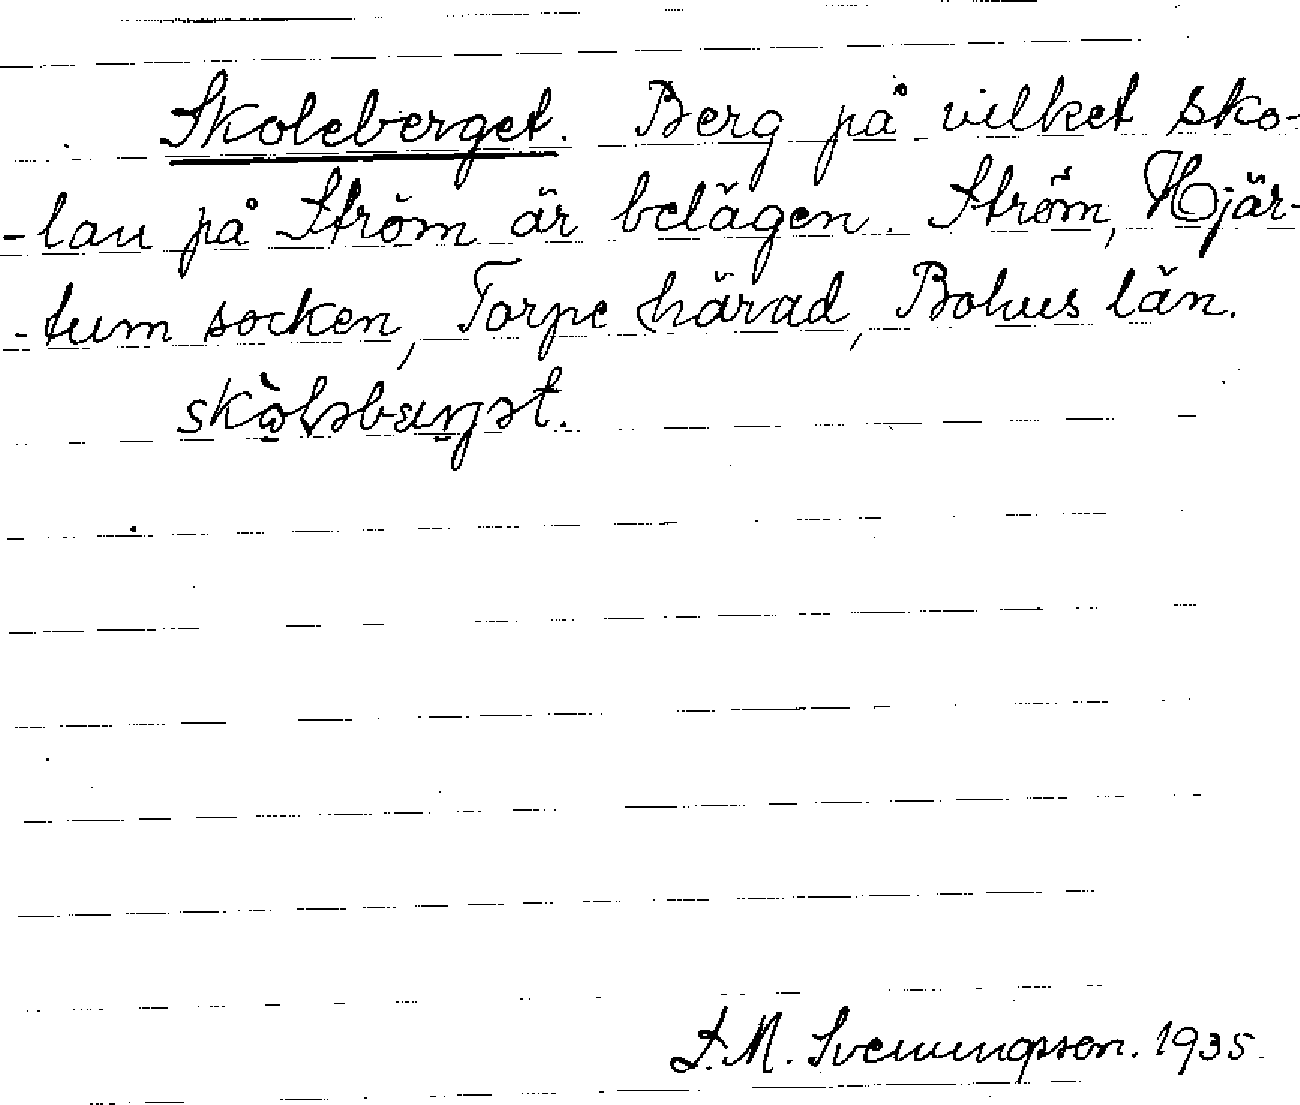 Skoleberget. Berg på vilket sko-
-lan på Ström är belägen. Ström, Hjär-
-tum socken, Torpe härad, Bohus län.
S.M. Svenungsson. 1935.